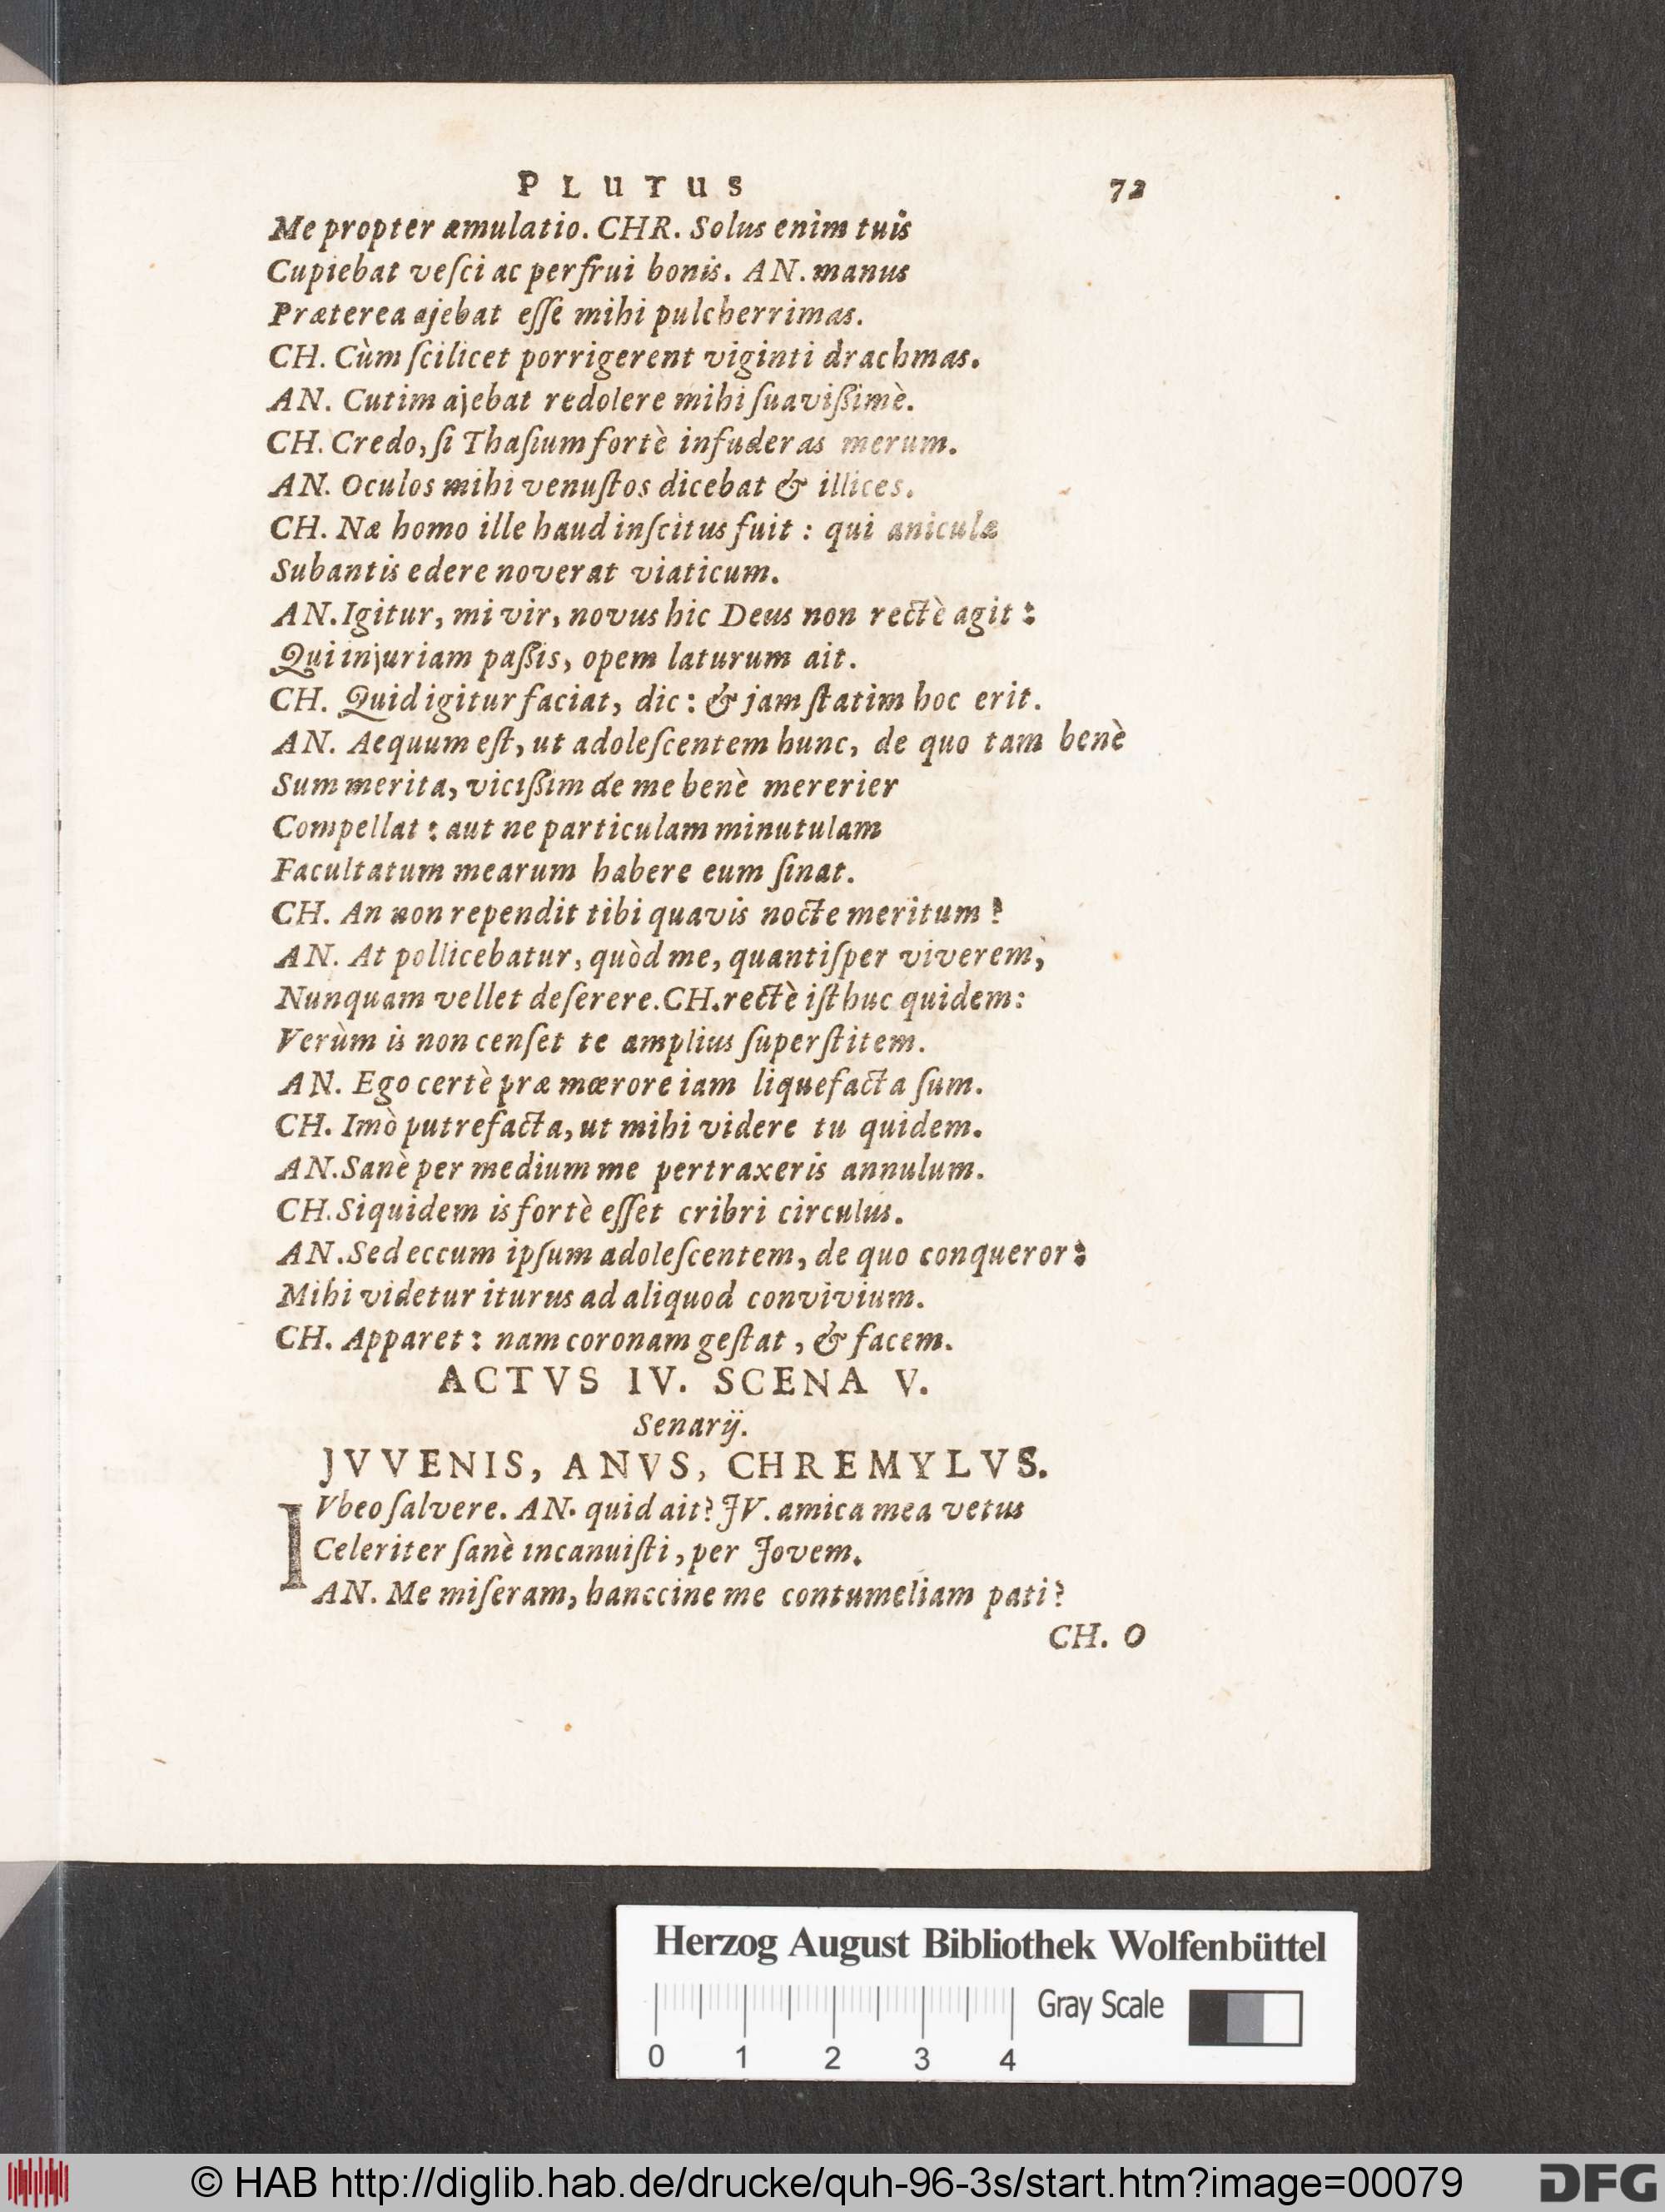 PLUTUS 72
Me propter æmulatio. CHR. Solus enim tuis
Cupiebat veſci ac perfrui bonis. AN. manus
Præterea ajebat eſſe mihi pulcherrimas.
CH. Cùm ſcilicet porrigerent viginti drachmas.
AN. Cutim ajebat redolere mihi ſuavißimè.
CH. Credo, ſi Thaſium fortè infuderas merum.
AN. Oculos mihi venuſtos dicebat & illices.
CH. Næ homo ille haud inſcitus fuit : qui aniculæ
Subantis edere noverat viaticum.
AN. Igitur, mi vir, novus hic Deus non rectè agit :
Qui injuriam paßis, opem laturum ait.
CH. Quid igitur faciat, dic : & jam ſtatim hoc erit.
AN. Aequum eſt, ut adoleſcentem hunc, de quo tam benè
Sum merita, vicißim de me benè mererier
Compellat : aut ne particulam minutulam
Facultatum mearum habere eum ſinat.
CH. An non rependit tibi quavis nocte meritum ?
AN. At pollicebatur, quòd me, quantiſper viverem,
Nunquam vellet deſerere. CH. rectè iſthuc quidem:
Verùm is non cenſet te amplius ſuperſtitem.
AN. Ego certè præ mœrore iam liquefacta ſum.
CH. Imò putrefacta, ut mihi videre tu quidem.
AN. Sanè per medium me pertraxeris annulum.
CH. Siquidem is fortè eſſet cribri circulus.
AN. Sed eccum ipſum adoleſcentem, de quo conqueror :
Mihi videtur iturus ad aliquod convivium.
CH. Apparet : nam coronam geſtat, & facem.
ACTVS IV. SCENA V.
Senarij.
JVVENIS, ANVS, CHREMYLVS.
IVbeo ſalvere. AN. quid ait? JV. amica mea vetus
Celeriter ſanè incanuiſti, per Jovem.
AN. Me miſeram, hanccine me contumeliam pati?
CH. O
Herzog August Bibliothek Wolfenbüttel
Gray Scale
0 1 2 3 4
© HAB http://diglib.hab.de/drucke/quh-96-3s/start.htm?image=00079
DFG